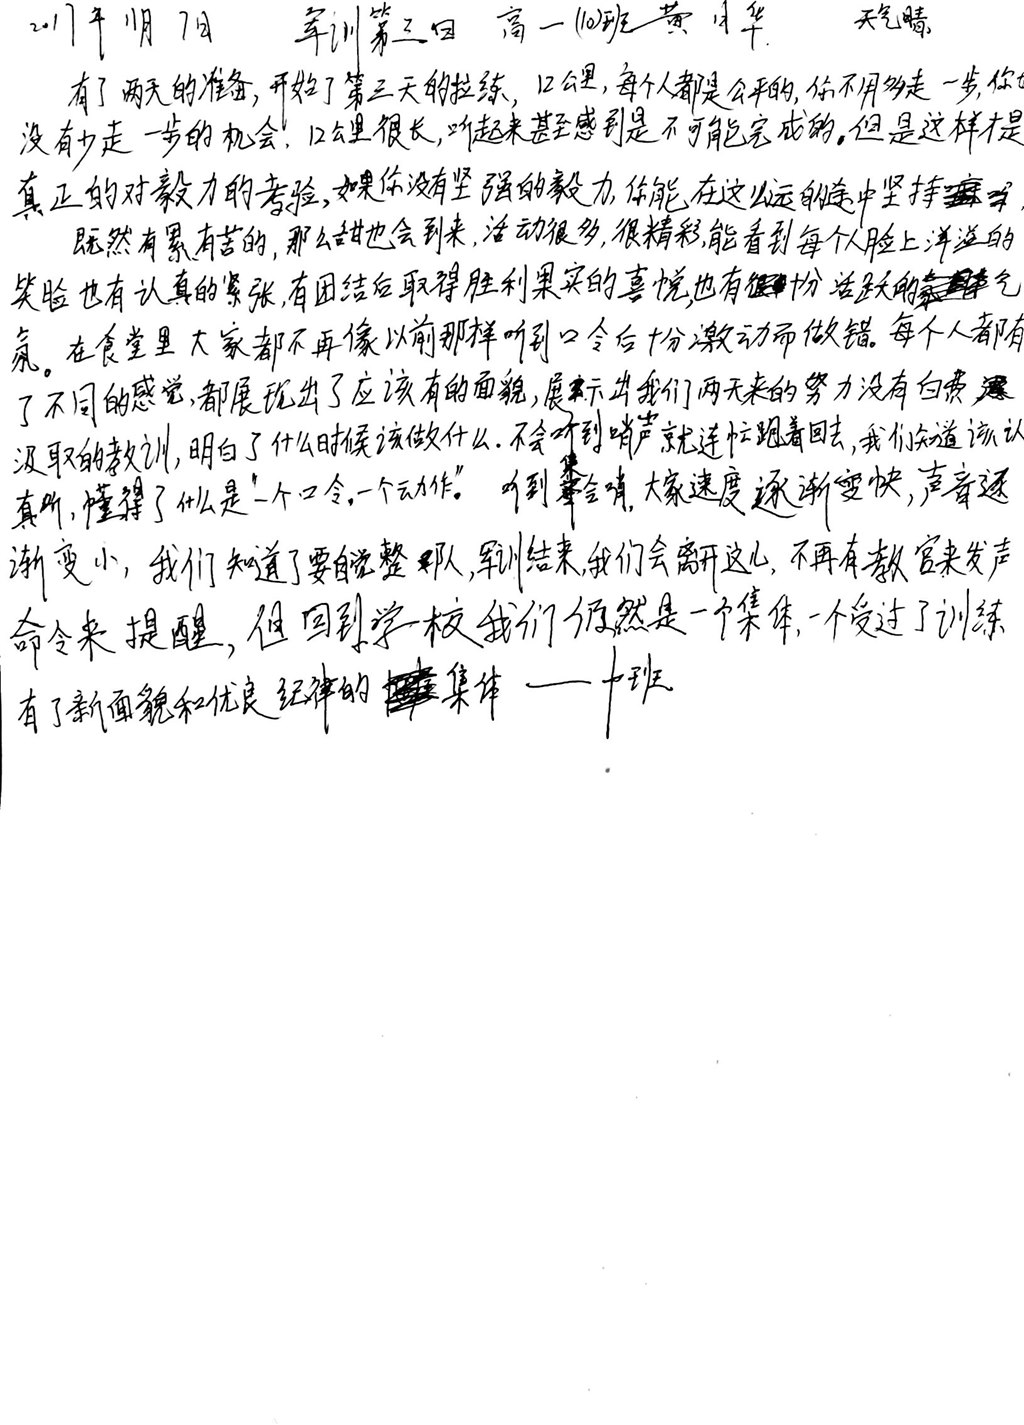 2017年11月7日 军训第三日 高一(10)班 黄月华 天气晴
有了两天的准备,开始了第三天的拉练,12公里,每个人都是公平的,你不用多走一步,你也
没有少走一步的机会!12公里很长,听起来甚至感到是不可能完成的。但是这样才是
真正的对毅力的考验,如果你没有坚强的毅力,你能在这么远的途中坚持
既然有累有苦的,那么甜也会到来,活动很多,很精彩,能看到每个人脸上洋溢的
笑脸也有认真的紧张,有团结后取得胜利果实的喜悦,也有十分活跃的气
氛。在食堂里大家都不再像以前那样听到口令后十分激动而做错。每个人都有
了不同的感觉,都展现出了应该有的面貌,展示出我们两天来的努力没有白费
汲取的教训,明白了什么时候该做什么.不会听到哨声就连忙跟着回去,我们知道该认
真听,懂得了什么是“一个口令。一个动作。” 听到集合哨,大家速度逐渐变快,声音逐
渐变小,我们知道了要自觉整队,军训结束,我们会离开这儿,不再有教官来发声
命令来提醒,但回到学校我们仍然是一个集体,一个受过了训练
有了新面貌和优良纪律的集体——十班